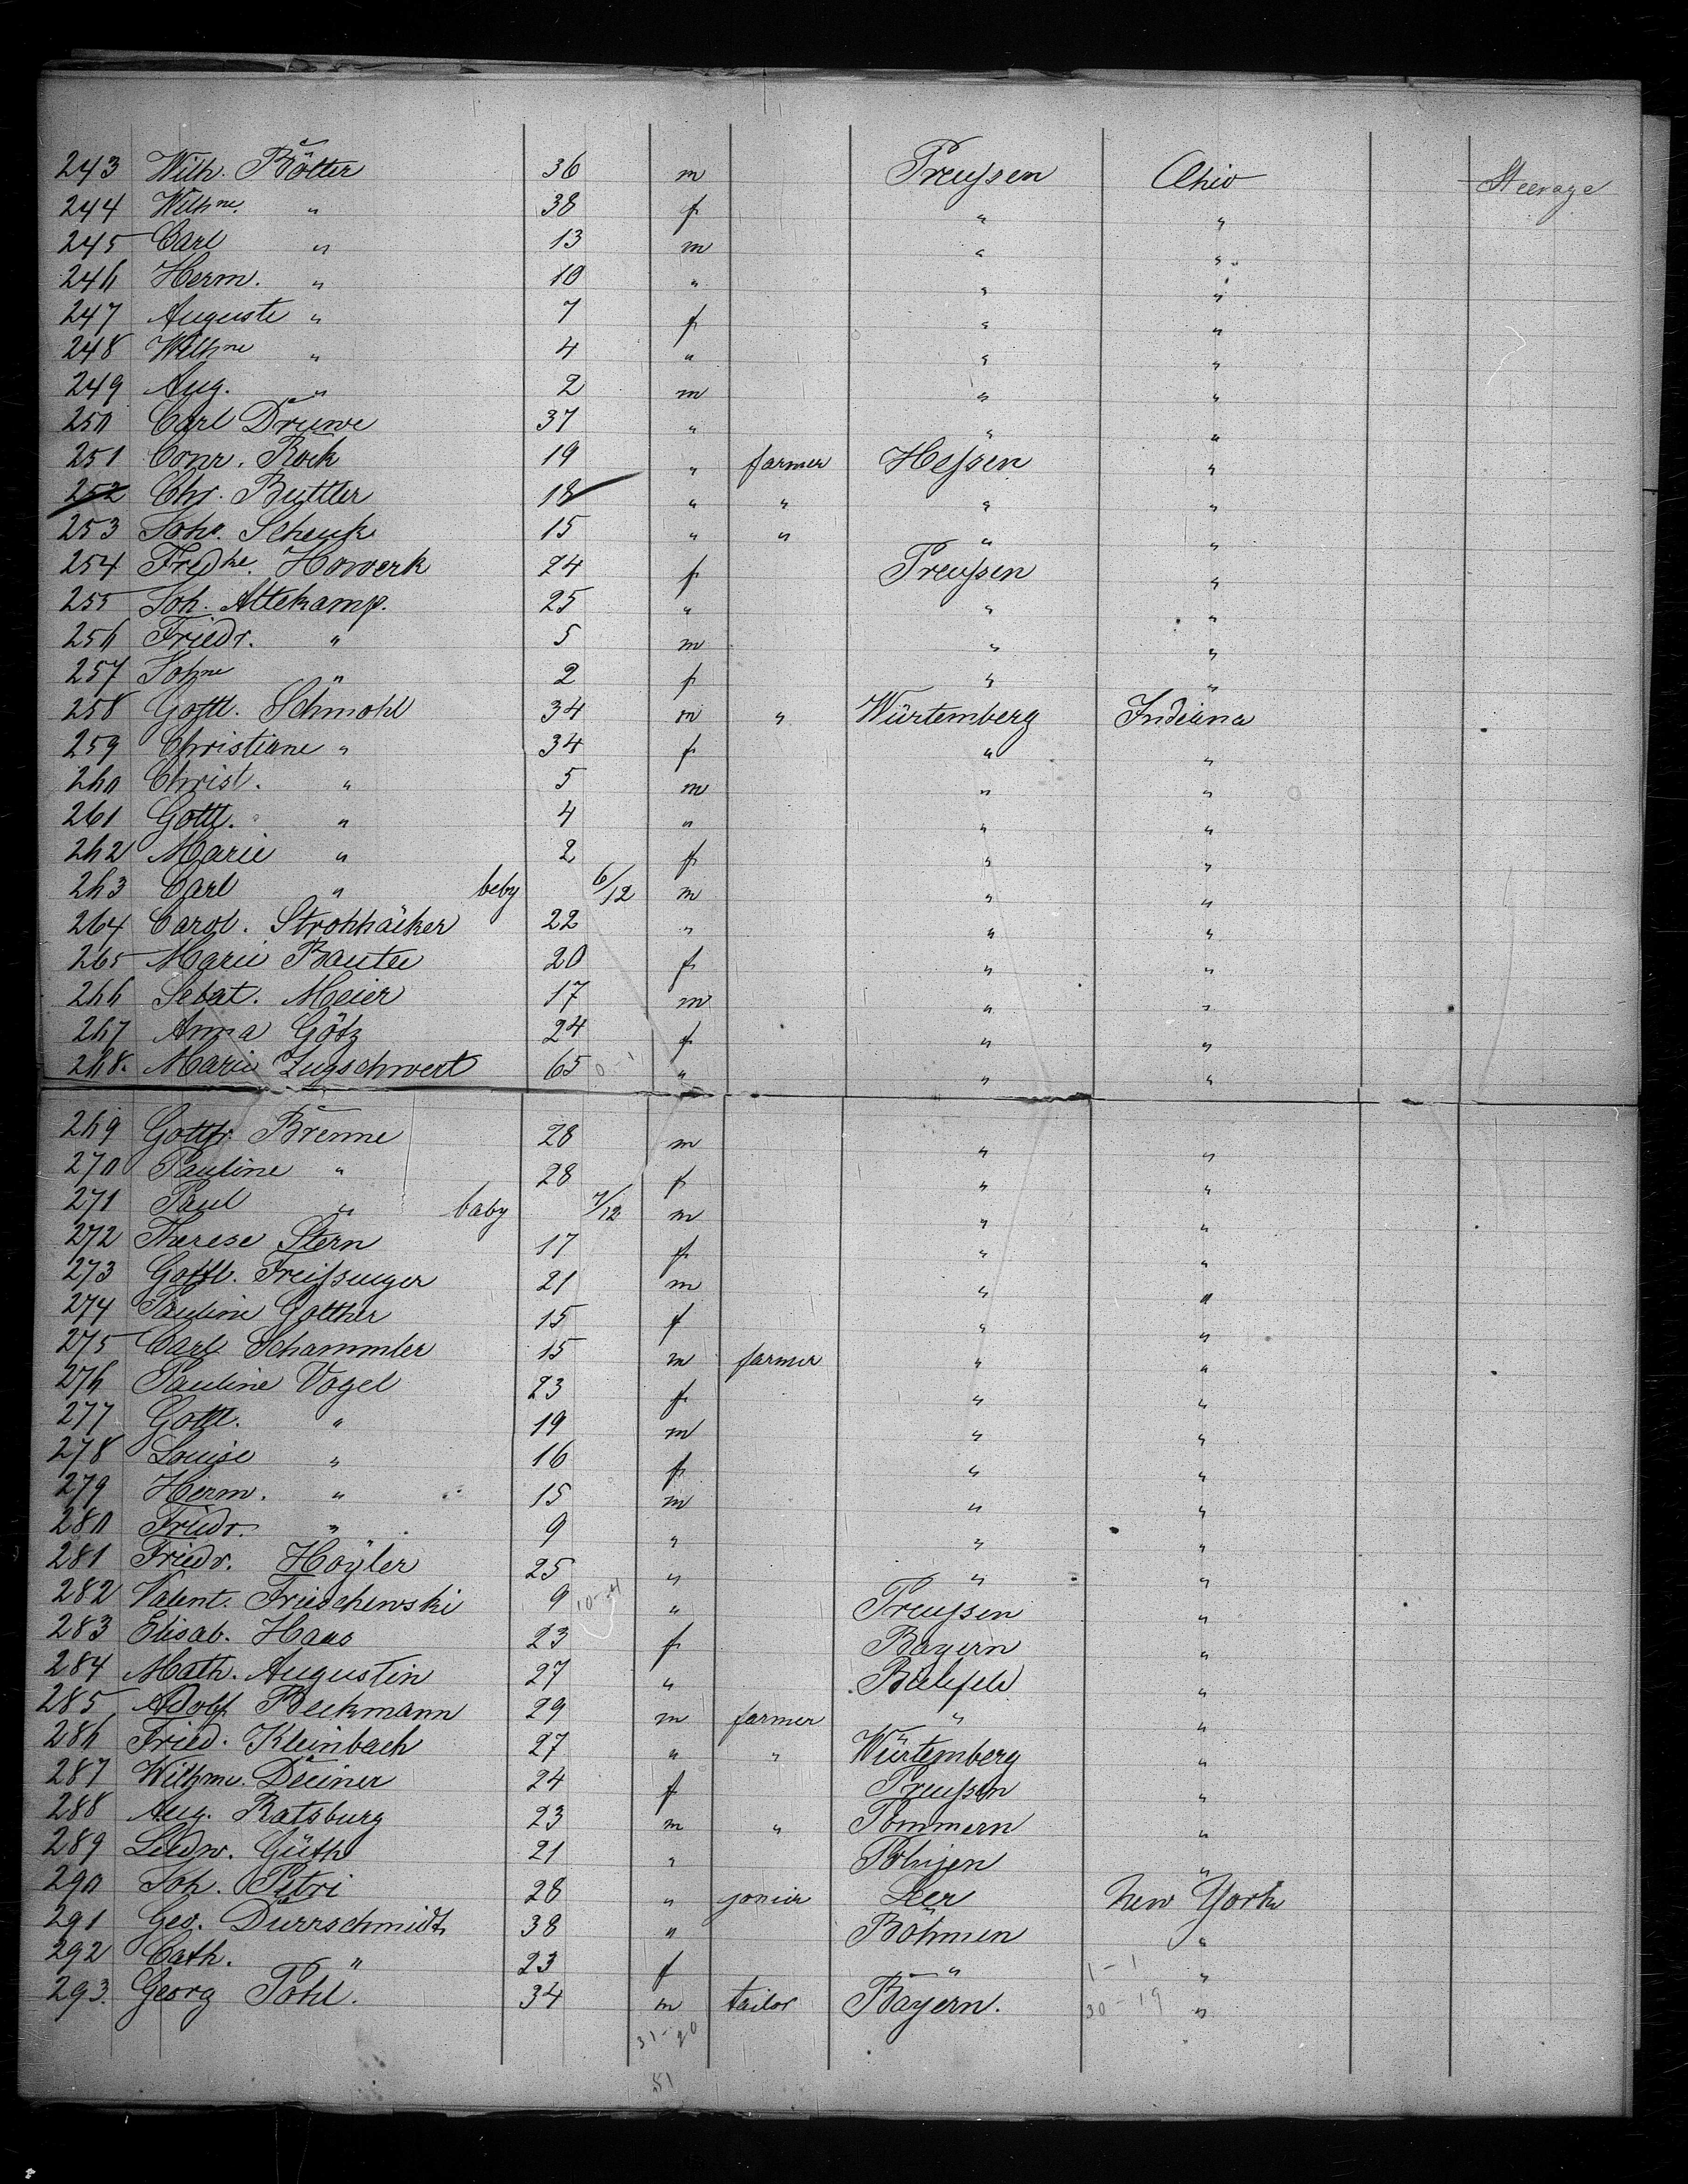 243 Wilh. Bötter 36 m Preußen Ohio Steerage
244 Wilhne. " 38 f " "
245 Carl " 13 m " "
246 Herm. " 10 " " "
247 Auguste " 7 f " "
248 Wilhne " 4 " " "
249 Aug. " 2 m " "
250 Carl Druwe 37 " " "
251 Conr. Rock 19 " farmer Hessen "
252 Chr. Buttler 18 " " " "
253 Joh. Schenk 15 " " " "
254 Fredke. Howerk 24 f Preußen "
255 Joh. Altekamp. 25 " " "
256 Friedr. " 5 m " "
257 Johne " 2 f " "
258 Gottl. Schmohl 34 m " Würtemberg Indiana
259 Christiane " 34 f " "
260 Christ. " 5 m " "
261 Gottl. " 4 " " "
262 Marie " 2 f " "
263 Carl " beby 6/12 m " "
264 Carol. Strohhäcker 22 " " "
265 Marie Bautee 20 f " "
266 Sebat. Meier 17 m " "
267 Anna Götz 24 f " "
268. Marie Zugschwert 65 0-1 " " "
269 Gottfr. Brenne 28 m " "
270 Pauline " 28 f " "
271 Paul " baby 7/12 m " "
272 Therese Stern 17 f " "
273 Gottl. Freißunger 21 m " "
274 Pauline Gotther 15 f " "
275 Carl Schammler 15 m farmer " "
276 Pauline Vogel 23 f " "
277 Gottl. " 19 m " "
278 Louise " 16 f " "
279 Herm. " 15 m " "
280 Friedr. " 9 " " "
281 Friedr. Hoyler 25 " " "
282 Valent. Frieschewski 9 10-4 " Preußen "
283 Elisab. Haas 23 f Bayern "
284 Math. Augustin 27 " Bielefeld "
285 Adolf Beckmann 29 m farmer " "
286 Fried. Kleinbach 27 " " Würtemberg "
287 Wilhme. Deciner 24 f Preußen "
288 Aug. Ratsburg 23 m " Pommern "
289 Ludw. Güth 21 " "
290 Joh. Petri 28 " Leer New York
291 Geo. Dürrschmidt 38 " Böhmen "
292 Cath. " 23 f " 1-1 "
293. Georg Pohl. 34 m tailor Bayern. 30-19 "
31-20
51